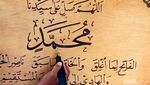 اللهم صل على سيدنا
محمد
الفاتح لما أغلق لما سبق ناصر
والهادي إلى المستقيم